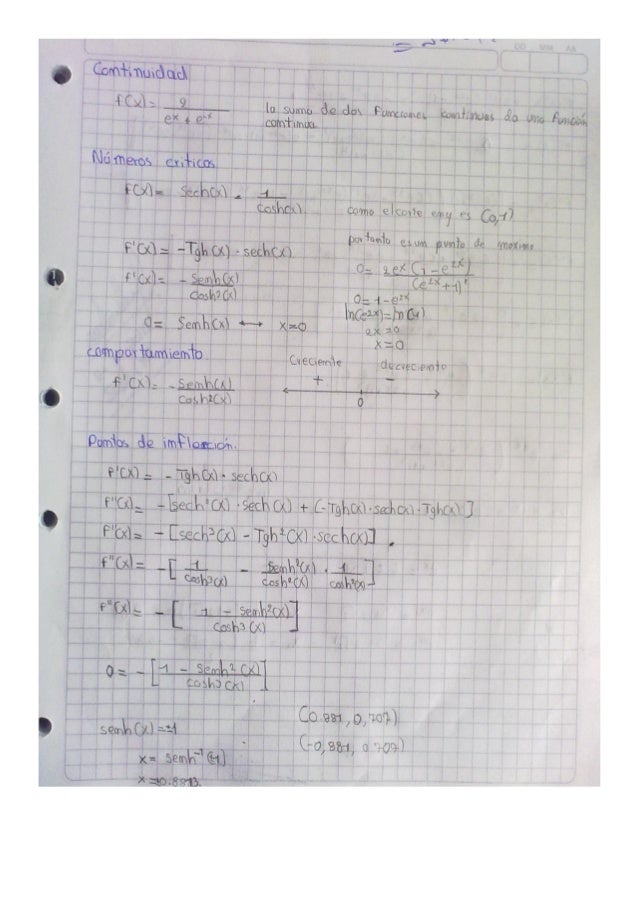 DD MM AA
Continuidad
f(x) = 2 / (e^x + e^-x)
la suma de dos funciones continuas da una función
continua
Números criticos
f(x) = sech(x) = 1 / cosh(x)
como el corte en y es (0,1)
por tanto es un punto de maximo
f'(x) = -Tgh(x) · sech(x)
0 = 2e^x (1 - e^2x) / (e^2x + 1)²
f'(x) = - Senh(x) / cosh²(x)
0 = 1 - e^2x
ln(e^2x) = ln(1)
2x = 0
0 = Senh(x) ↔ x = 0
x = 0
comportamiento
Creciente decreciente
+ -
f'(x) = - Senh(x) / cosh²(x)
0
Puntos de inflexión.
f'(x) = - Tgh(x) · sech(x)
f''(x) = - [sech²(x) · sech(x) + (-Tgh(x) · sech(x) · Tgh(x)]
f''(x) = - [sech³(x) - Tgh²(x) · sech(x)]
f''(x) = - [1 / cosh³(x) - Senh²(x) / cosh²(x) · 1 / cosh(x)]
f''(x) = - [1 - senh²(x) / cosh³(x)]
0 = - [1 - senh²(x) / cosh³(x)]
senh(x) = ±1
(0.881, 0,707)
(-0,881, 0.707)
x = senh⁻¹(1)
x = ±0.8813